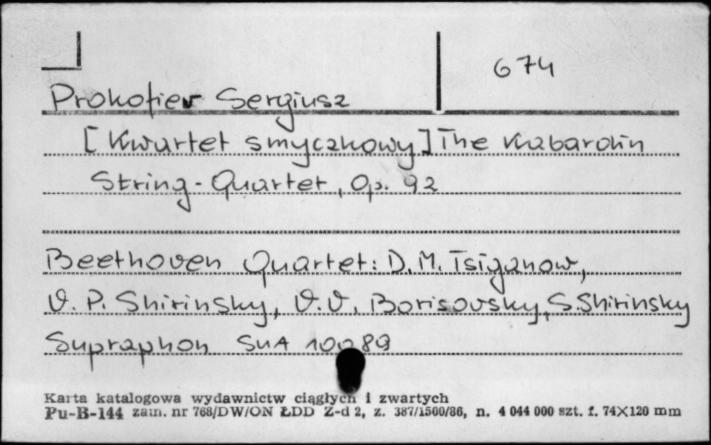 674
Prokofiev Sergiusz
[Kwartet smyczkowy] The Kabardin
String-Quartet, Op. 92
Beethoven Quartet: D.M. Tsiganow,
V.P. Shirinsky, V.V. Borisovsky, S.Shirinsky
Supraphon SUA 10089
Karta katalogowa wydawnictw ciągłych i zwartych
Pu-B-144 zam. nr 768/DW/ON ŁDD Z-d 2, z. 387/1500/86, n. 4 044 000 szt. f. 74×120 mm